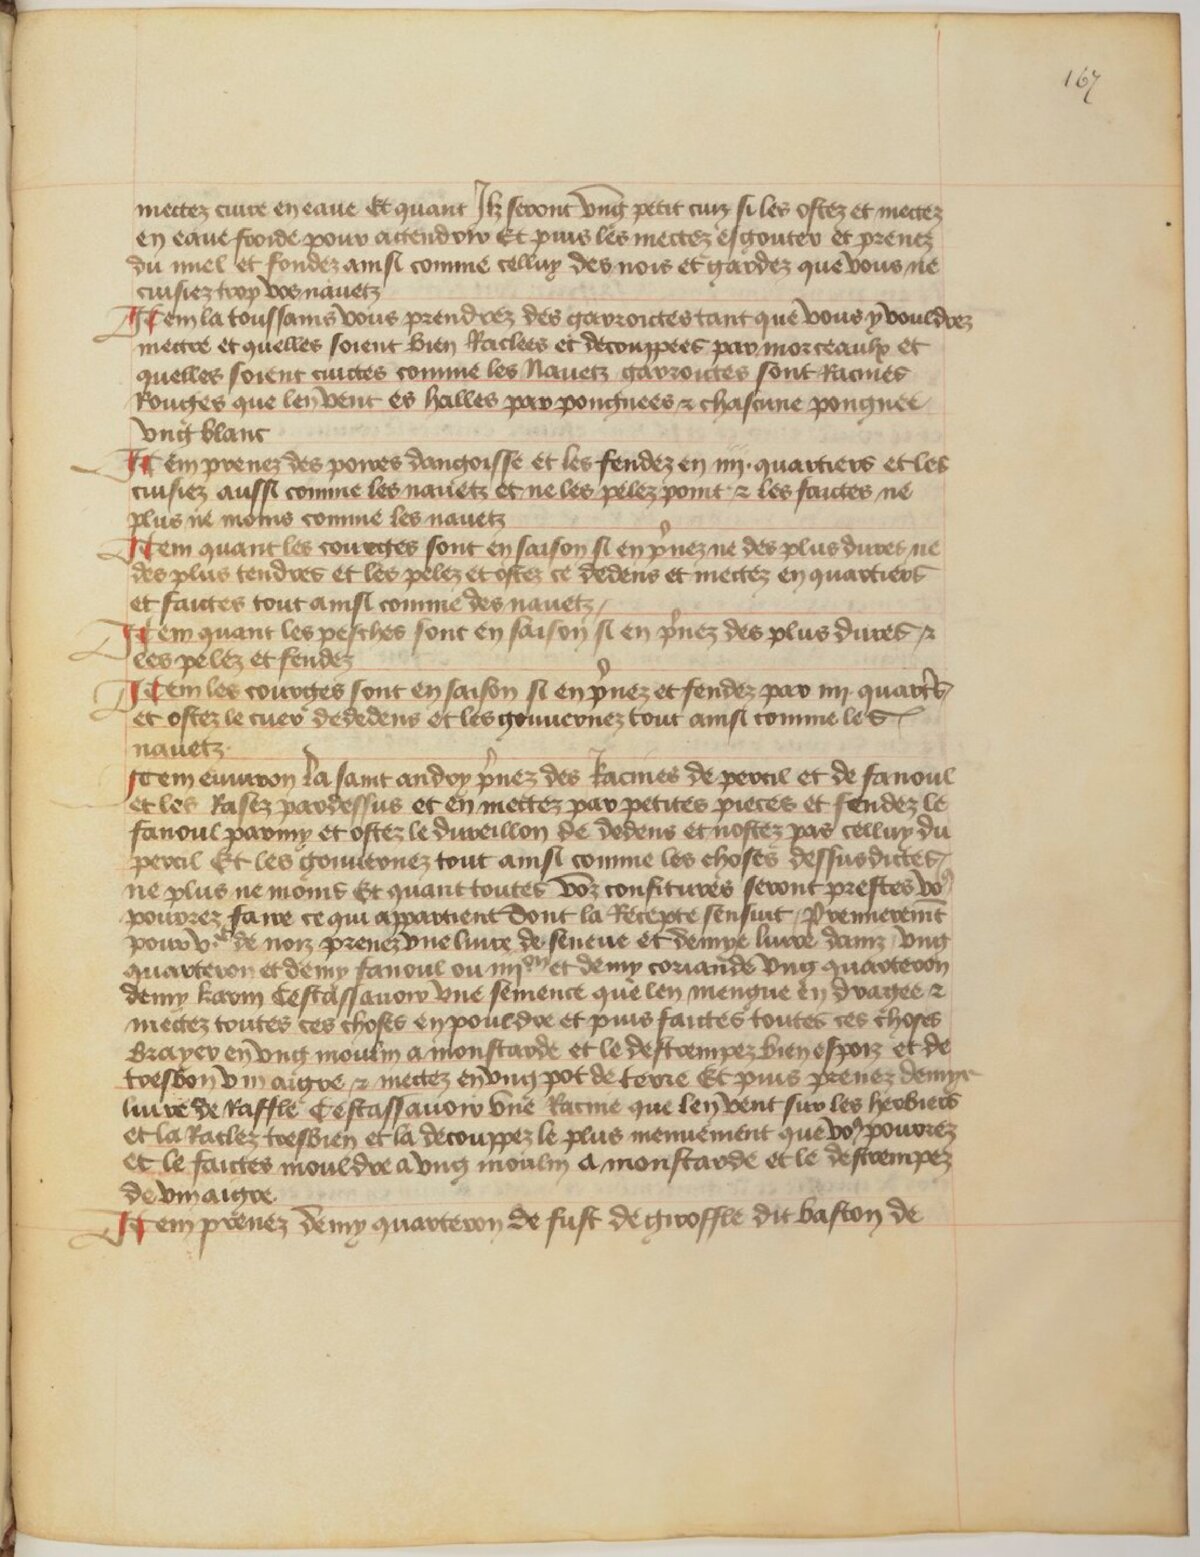 167
mectez cuire en eaue Et quant Ilz seront vng petit cuiz si les ostez et mectez
en eaue froide pour actendrir Et puis les mectez esgouter et prenez
du miel et fondez ainsi comme celluy des nois et gardez que vous ne
cuisiez trop voz nauetz
Item la toussains vous prendrez des garroictes tant que vous y vouldrez
mectre et quelles soient bien Raclees et decouppees par morceaulx et
quelles soient cuictes comme les Nauetz garroictes sont Racines
Rouges que len vent es halles par pongnees ⁊ chascune pongnee
vng blanc
Item prenez des poires dangoisse et les fendez en iiii. quartiers et les
cuisiez aussi comme les nauetz et ne les pelez point ⁊ les faictes ne
plus ne moins comme les nauetz
Item quant les courges sont en saison si en p̄nez ne des plus dures ne
des plus tendres et les pelez et ostez ce dedens et mectez en quartiers
et faictes tout ainsi comme des nauetz /
Item quant les pesches sont en saison si en p̄nez des plus dures ⁊
les pelez et fendez
Item les courges sont en saison si en p̄nez et fendez par iiii. quart̄s
et ostez le cuer dededens et les gouuernez tout ainsi comme les
nauetz.
Item enuiron la saint andry p̄nez des Racines de percil et de fanoul
et les Rasez pardessus et en mectez par petites pieces et fendez le
fanoul parmy et ostez le dureillon de dedens et nostez pas celluy du
percil Et les gouuernez tout ainsi comme les choses dessusdictes /
ne plus ne moins Et quant toutes voz confitures seront prestes vo9
pourrez faire ce qui appartient Dont la Recepte sensuit / Premierem̄t
pour vc de noiz prenez vne liure de seneue et demye liure daniz vng
quarteron et demy fanoul ou iiiion et demy coriande vng quarteron
demy karuy Cestassauoir vne semence que len mengue en dragee ⁊
mectez toutes ces choses en pouldre et puis faictes toutes ces choses
Brayer en vng moulin a moustarde et le destrempez bien espoiz et de
tresbon vin aigre ⁊ mectez en vng pot de terre Et puis prenez demye
liure de Raffle Cestassauoir vne Racine que len vent sur les herbiers
et la Raclez tresbien et la decouppez le plus menuement que vo9 pourrez
et le faictes mouldre a vng moulin a moustarde et le destrempez
de vin aigre.
Item prenez demy quarteron de fust de giroffle dit baston de